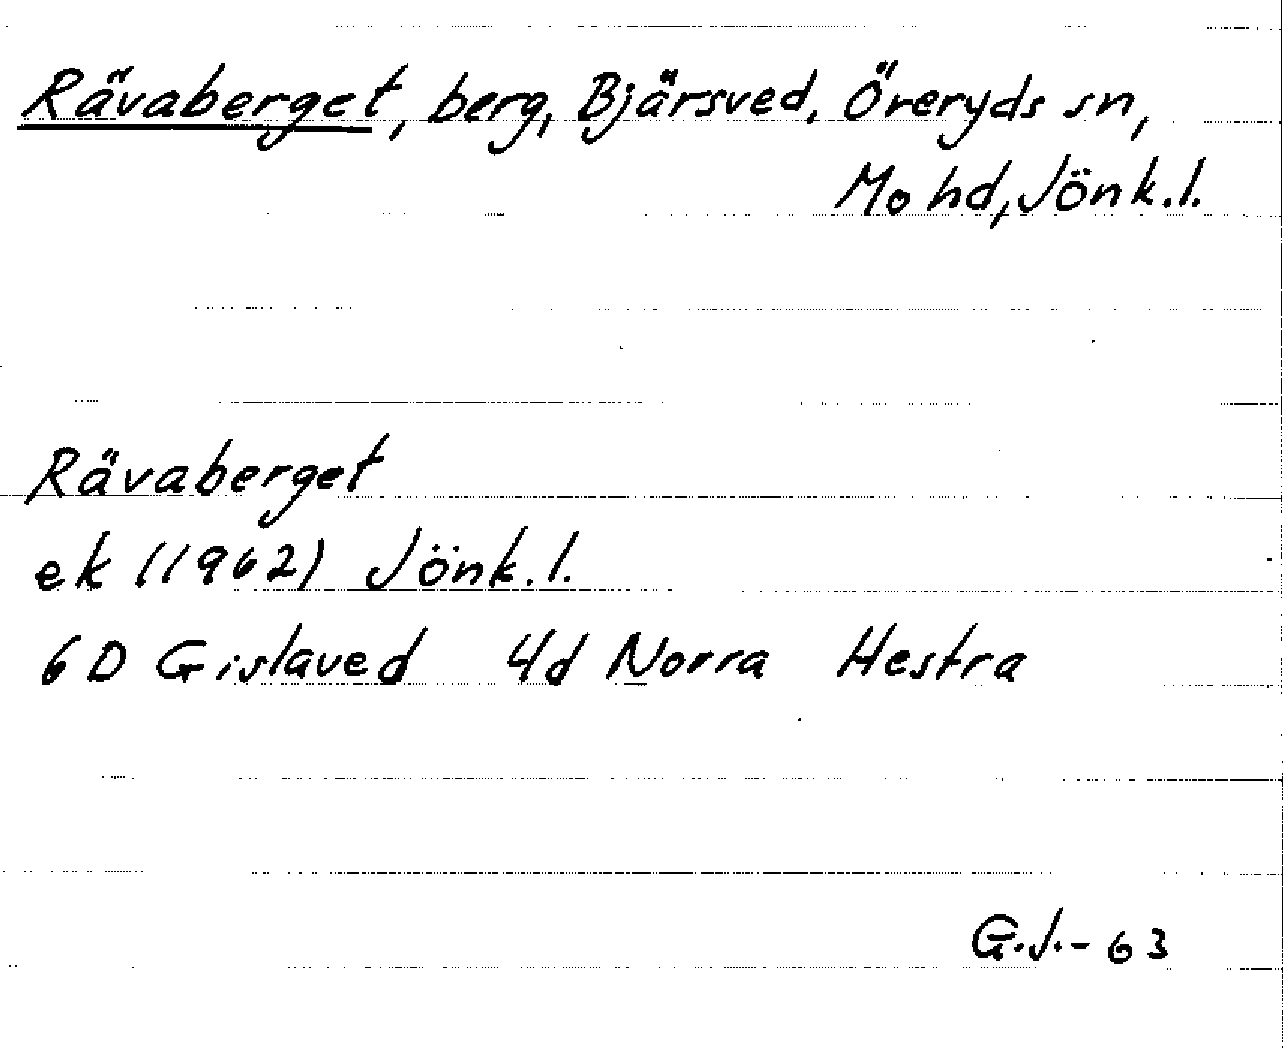 Rävaberget, berg, Bjärsved, Öreryds sn,
Mo hd, Jönk.l.
Rävaberget
ek (1962) Jönk.l.
6D Gislaved 4d Norra Hestra
G.J.-63